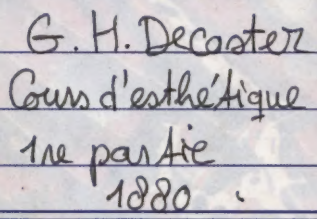 G. H. Decaster
Cours d'esthétique
1re partie
1880.